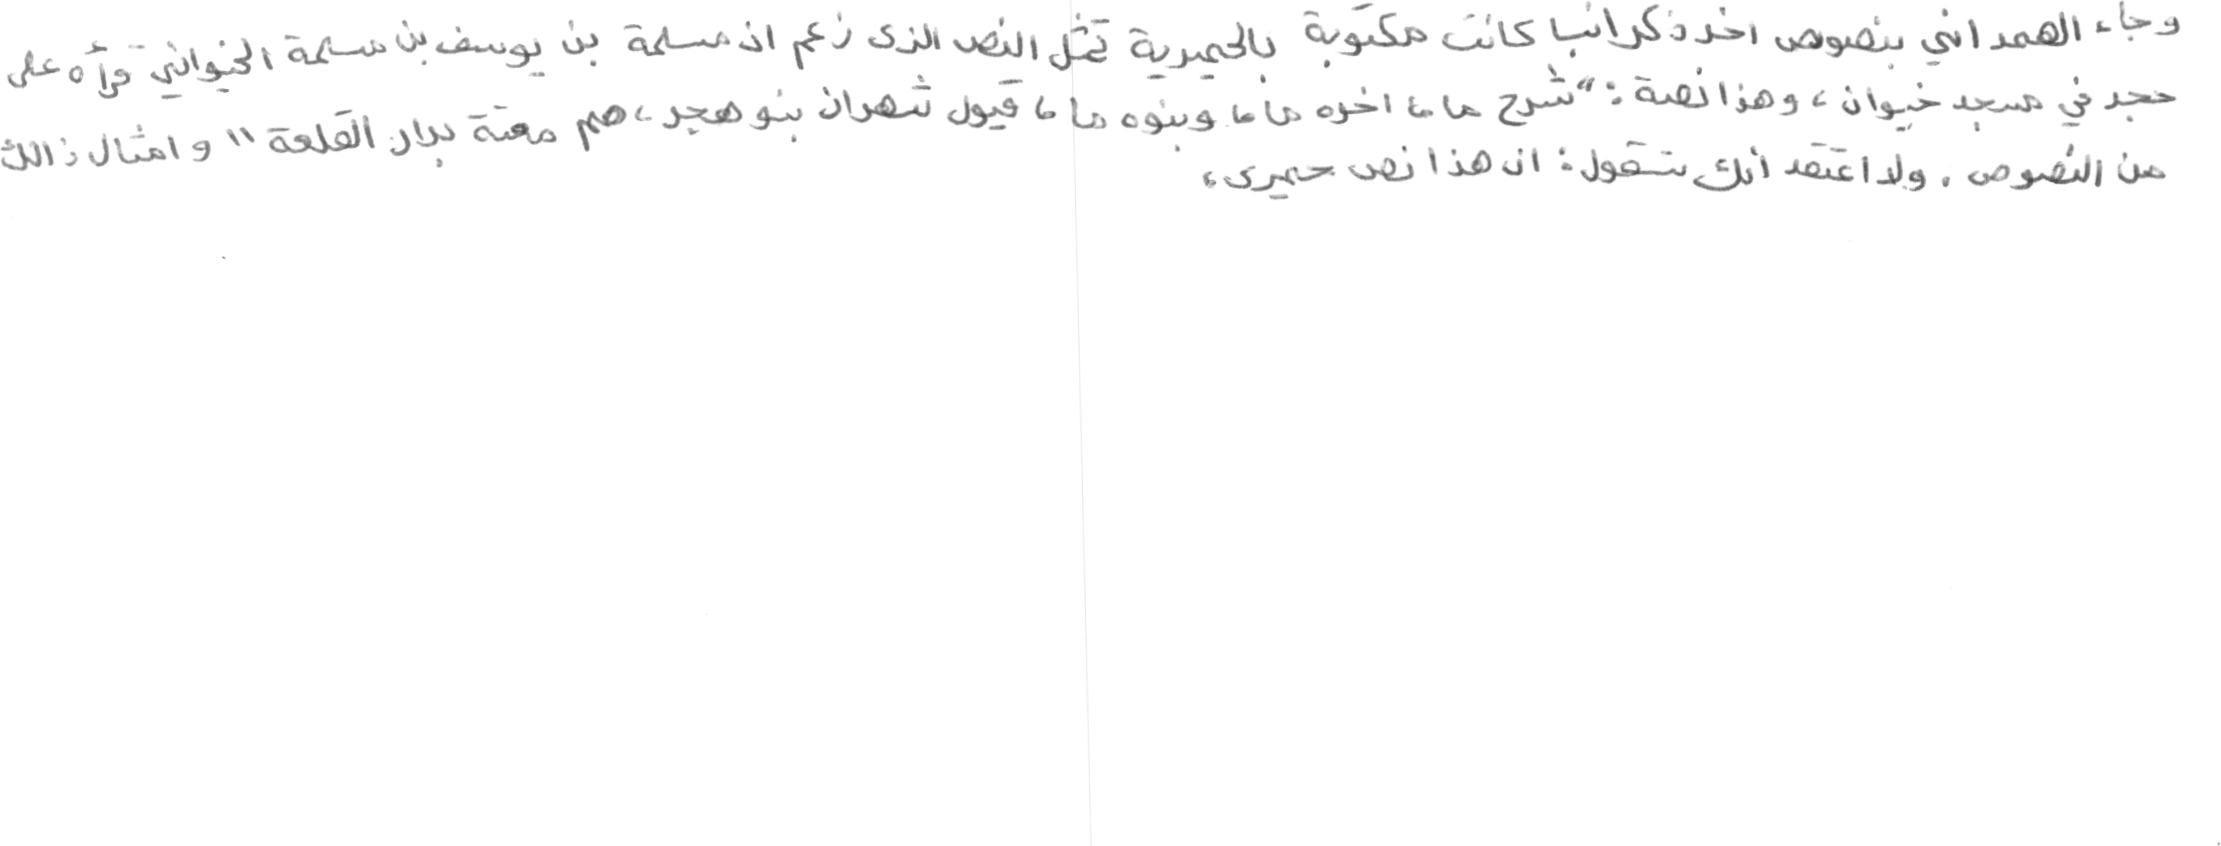 وجاء الهمداني بنصوص اخر ذكر انها كانت مكتوبة بالحميرية تمثل النص الذى زعم ان مسلمة بن يوسف بن مسلمة الخيواني قرأه على
حجر في مسجد خيوان، وهذا نصة: "شرح ما، اخوه ما، وبنوه ما، قيول شهران بنو هجر، هم معتة بدار القلعة" و امثال ذالك
من النصوص. ولا اعتقد أنك ستقول: ان هذا نص حميرى،